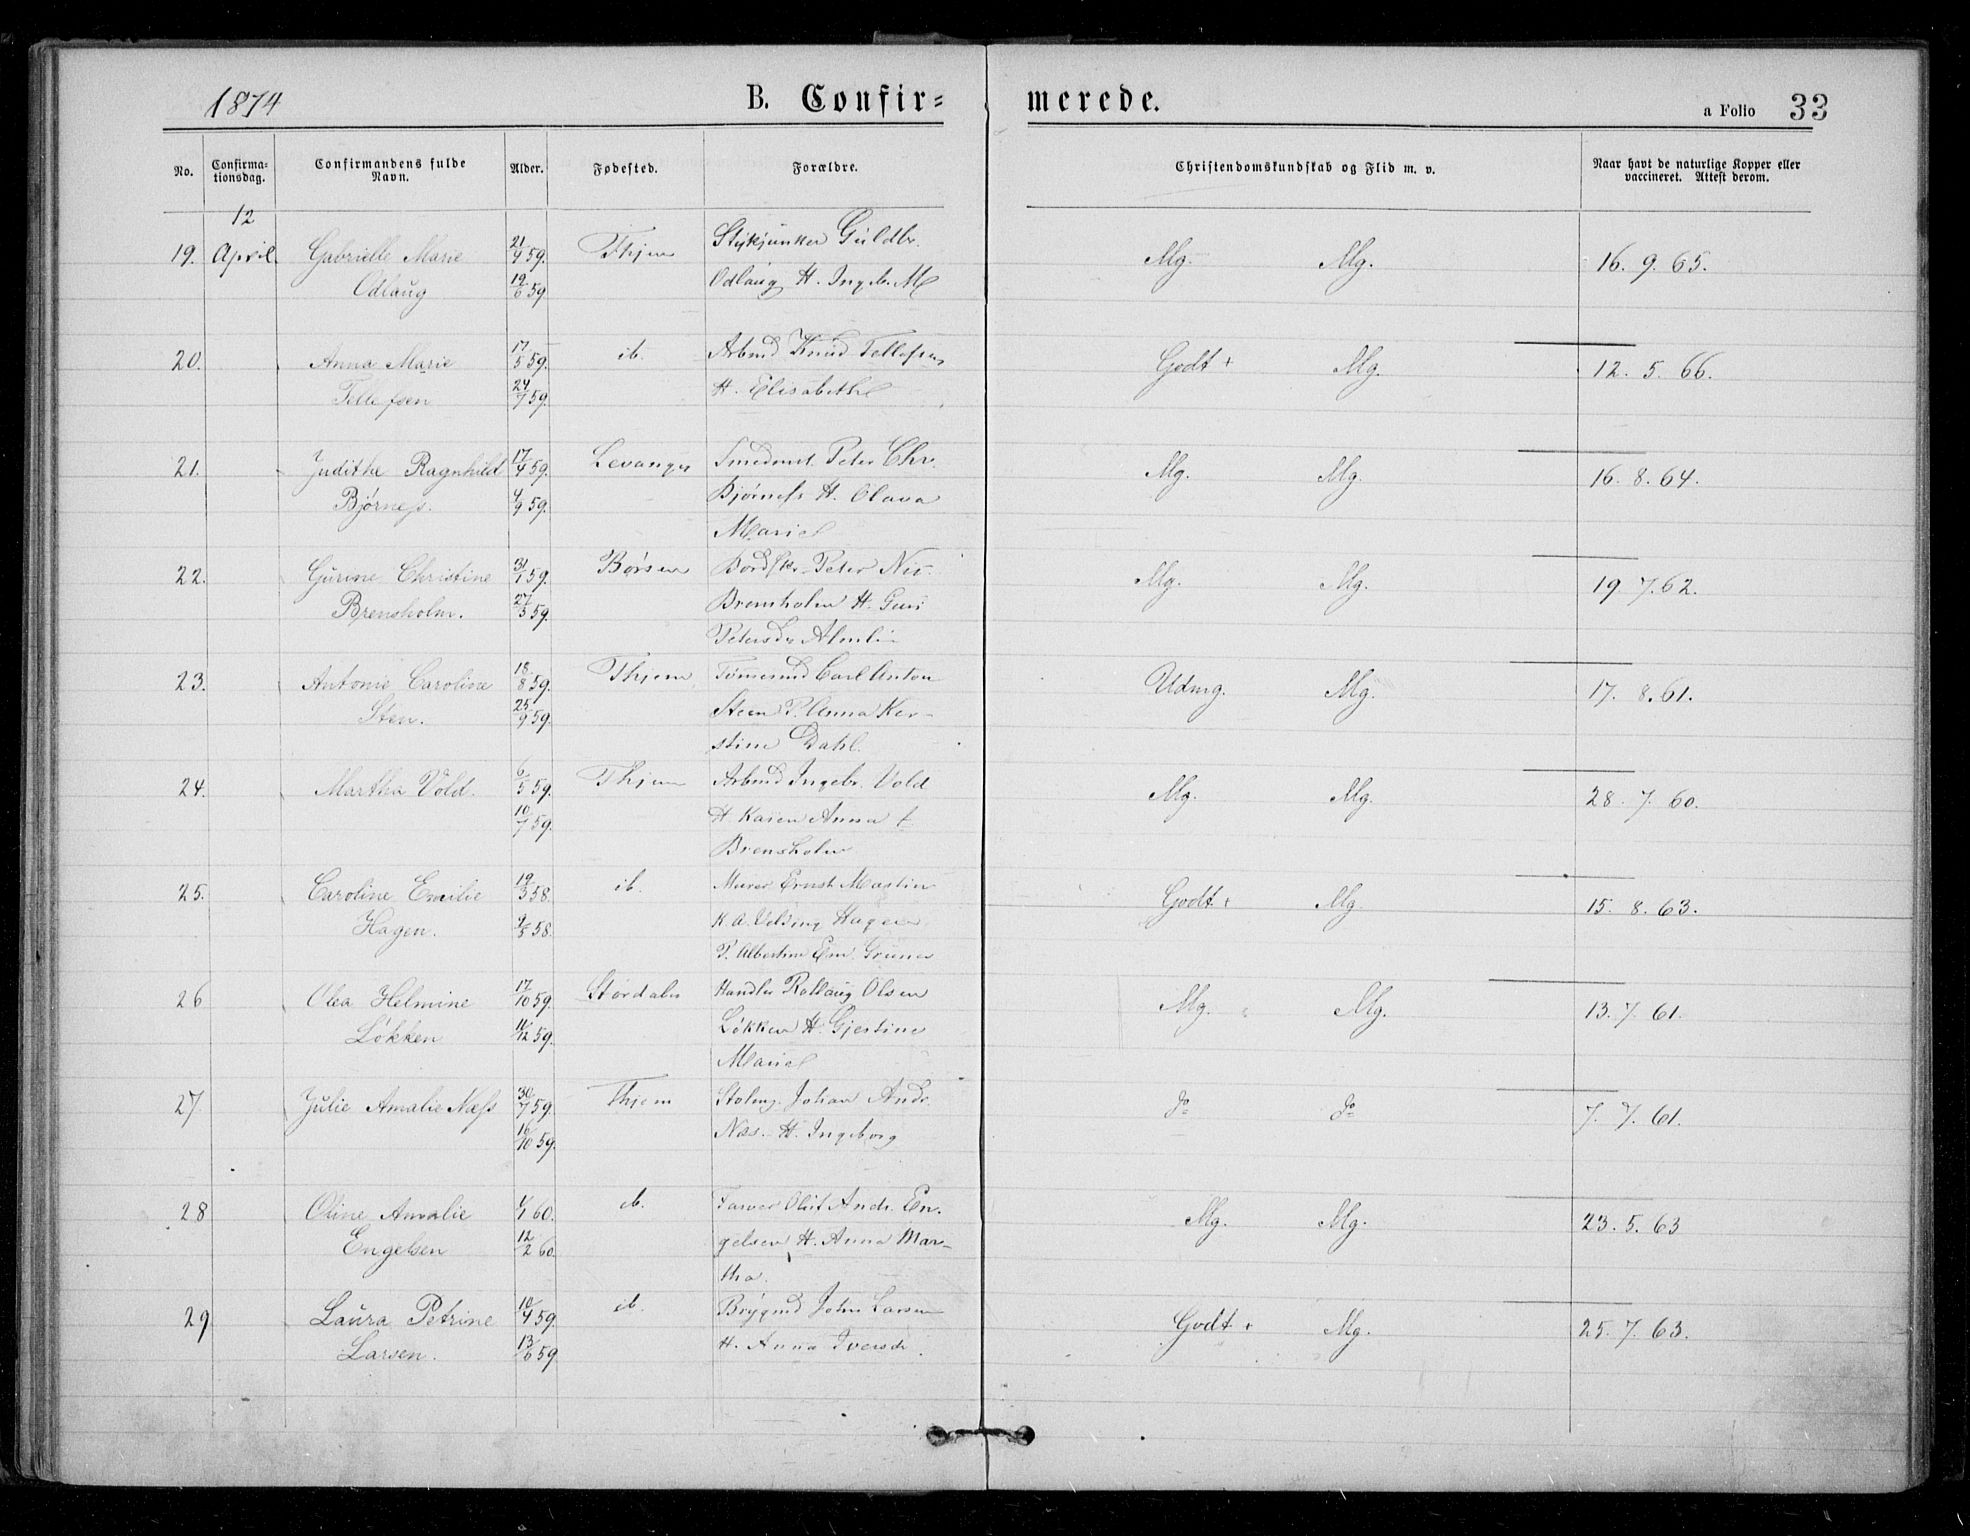 1874 B. Confir= merede. a Folio 33
No. Confirma=tionsdag. Confirmandens fulde Navn. Alder. Fødested. Forældre. Christendomskundskab og Flid m. v. Naar havt de naturlige Kopper eller vaccineret. Attest derom.
12
19. April Gabrielle Marie 21/4 59. Thjem Stykjunker Guldbr. Mg. Mg. 16. 9. 65.
Odlaug 19/6 59 Odlaug H. Ingb. M
20. Anna Marie 17/5 59. ib. Arbmd Knud Tellefsen Godt + Mg. 12. 5. 66.
Tellefsen 24/7 59. H. Elisabeth
21. Judithe Ragnhild 17/4 59. Levanger Smedmst. Peter Chr. Mg. Mg. 16. 8. 64.
Bjørness. 4/9 59. Bjørness H. Olava
Marie
22. Gurine Christine 31/1 59. Børsen Bordskr. Peter Nic. Mg. Mg. 19 7. 62.
Brensholm. 27/3 59. Brensholm H. Guri
Petersdr Almli
23. Antonie Caroline 18/8 59. Thjem Tømmermd Carl Anton Udmrg. Mg. 17. 8. 61.
Sten. 25/9 59. Steen P. Anna Ker-
stine Dahl.
24. Martha Vold. 6/5 59. Thjem Arbmd Ingebr. Vold Mg. Mg. 28. 7. 60.
10/7 59. H. Karen Anna f.
Brensholm
25. Caroline Emilie 19/3 58. ib. Murer Ernst Martin Godt + Mg. 15. 8. 63.
Hagen. 9/5 58. Hagen
P. Albertine Em. Gruner
26 Olea Helmine 17/10 59. Størdalen Handler Rollaug Olsen Mg. Mg. 13. 7. 61.
Løkken 11/12 59. Løkken H. Gjertine
Marie
27 Julie Amalie Næss 30/7 59. Thjem Stolmg. Johan Andr. do do 7. 7. 61.
16/10 59. Næs. H. Ingeborg
28 Oline Amalie 1/1 60. ib. Farver Oluf Andr. En- Mg. Mg. 23. 5. 63
Engelsen 12/2 60. gelsen H. Anna Mar-
tha.
29 Laura Petrine 10/4 59. ib. Brygmd John Larsen Godt + Mg. 25. 7. 63.
Larsen. 13/6 59 H. Anna Iversdr.